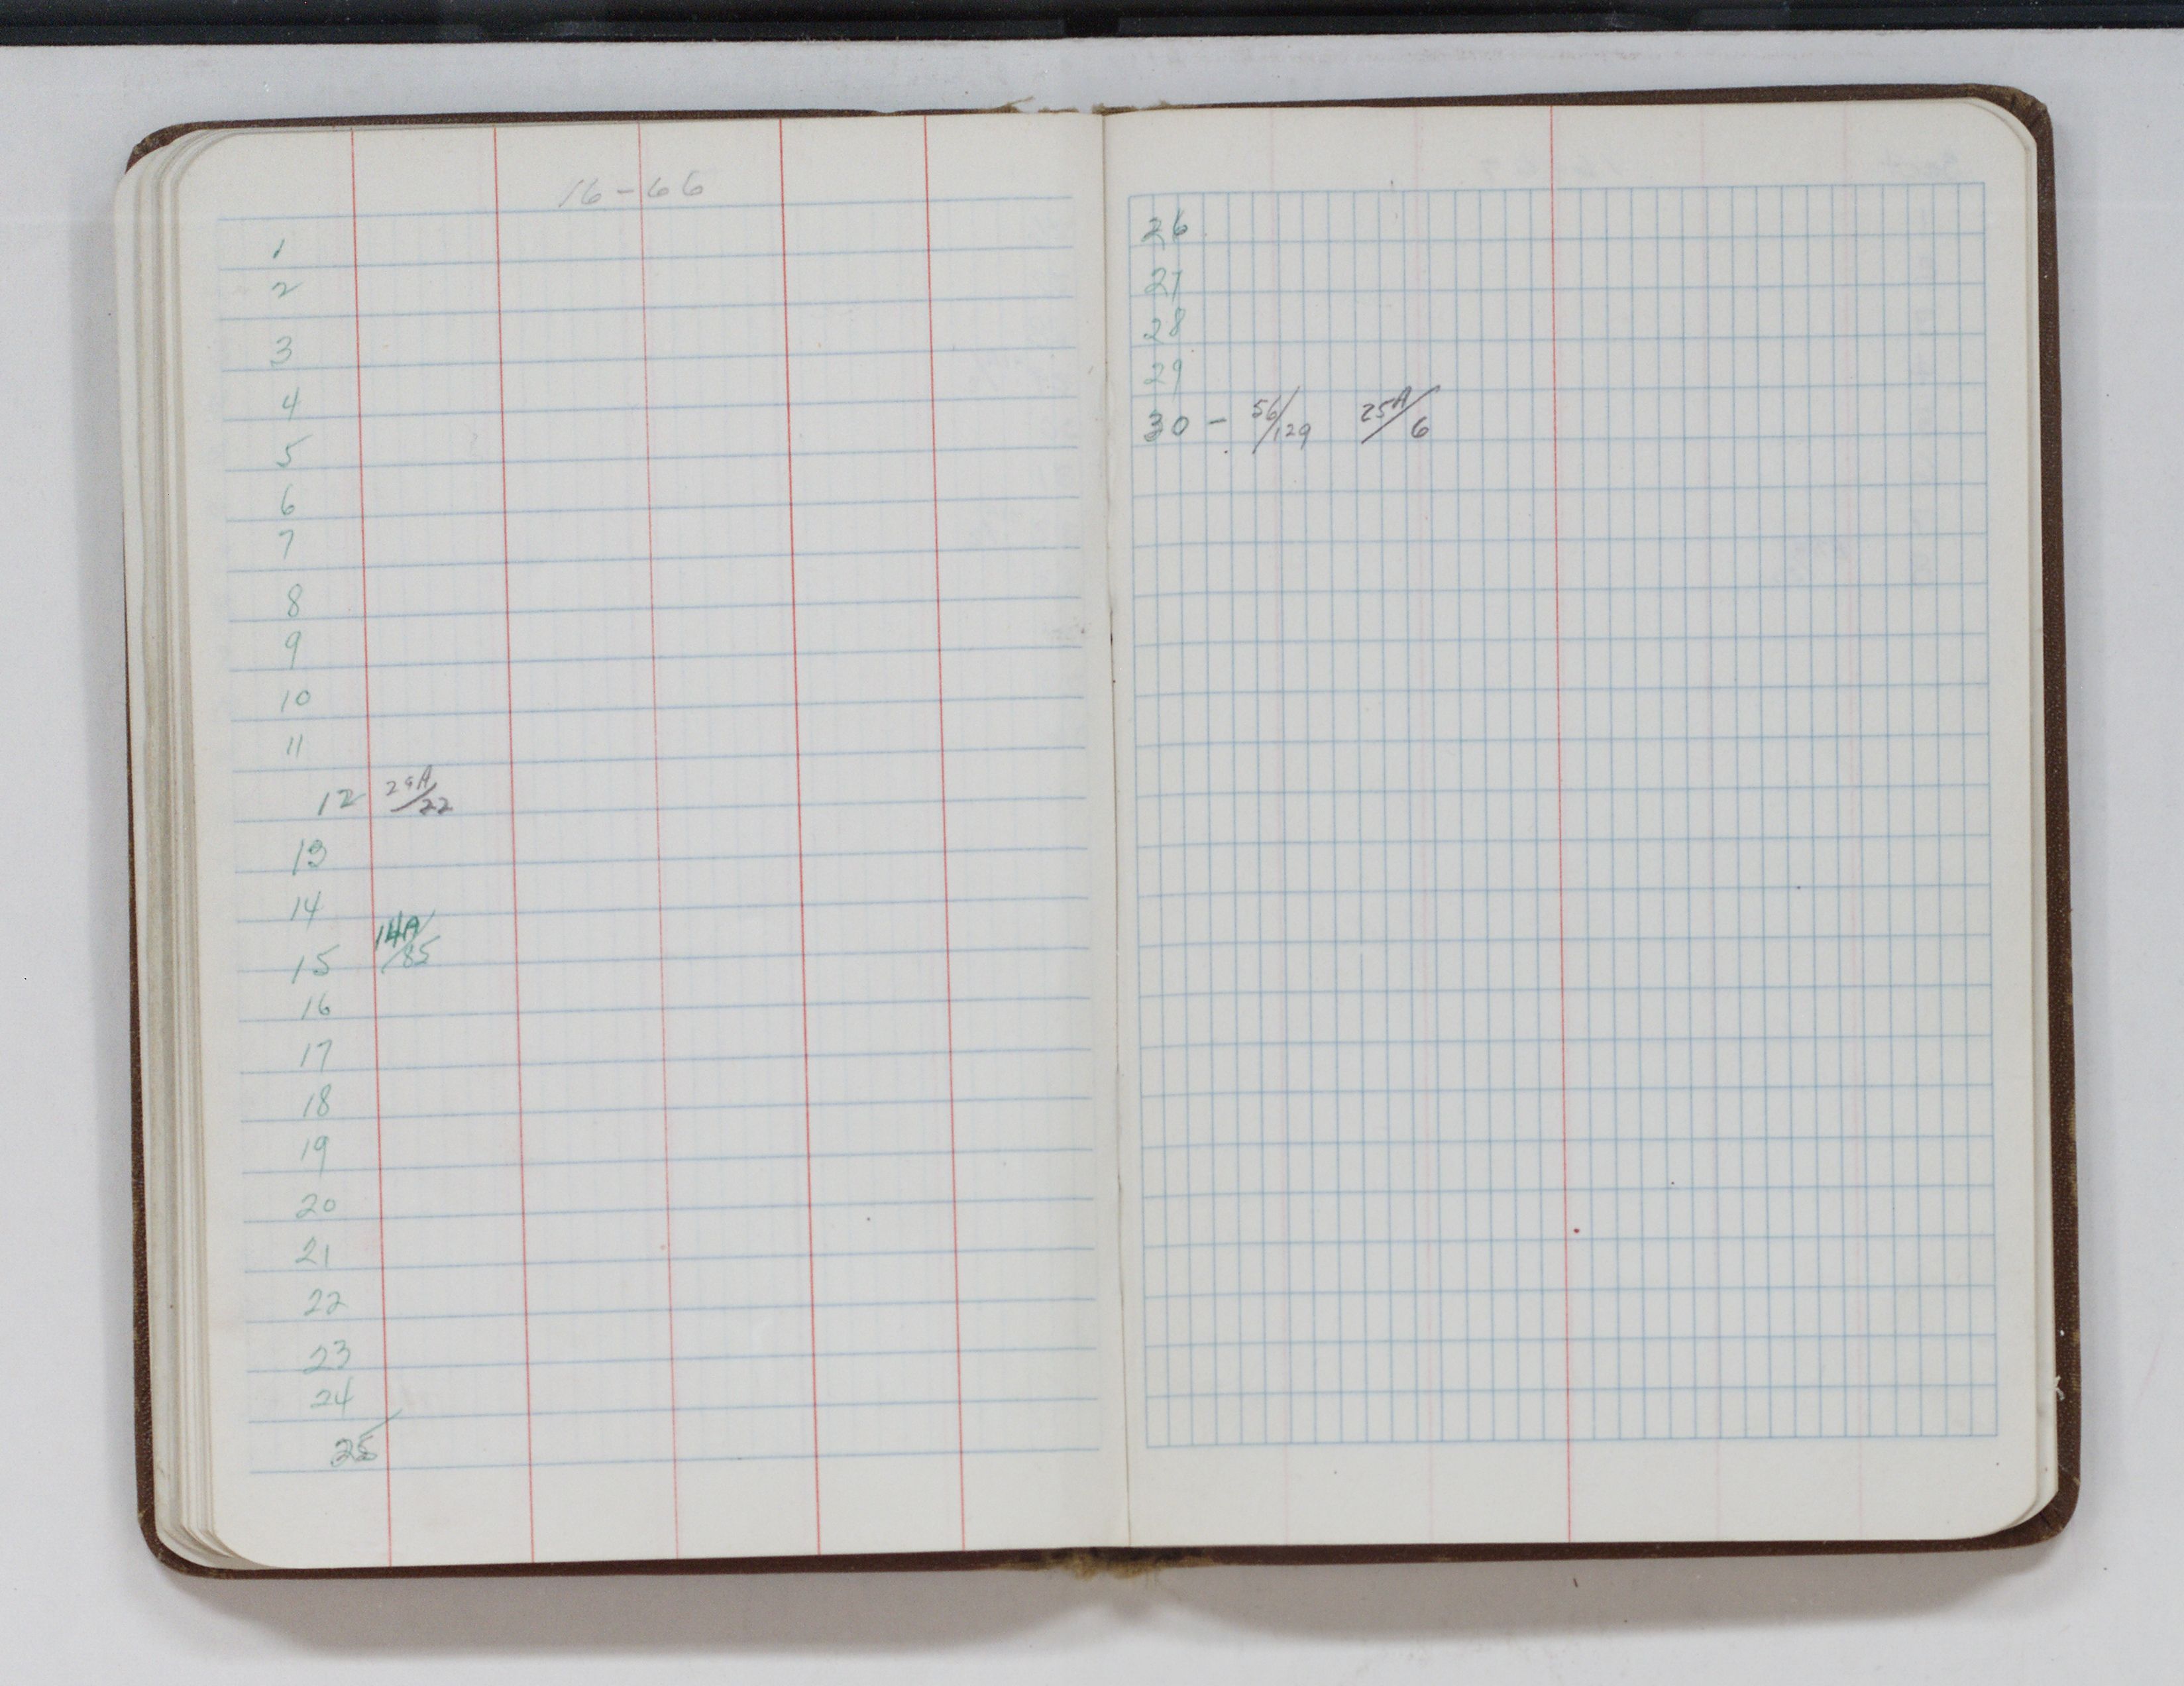 16-66
1
2
3
4
5
6
7
8
9
10
11
12 29A/22
13
14
15 14A/85
16
17
18
19
20
21
22
23
24
25
26
27
28
29
30 - 56/129 25A/6